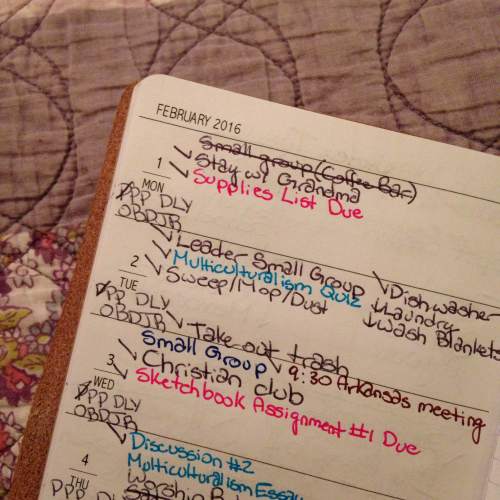 FEBRUARY 2016
Small group (Coffee Bar)
1
Stay w/ Grandma
MON
Supplies List Due
PPP DLY
OBDJB
Leader Small Group
Dishwasher
2
Multiculturalism Quiz
Laundry
TUE
Sweep/Mop/Dust
Wash Blankets
PPP DLY
OBDJB
Take out trash
Small Group
9:30 Arkansas meeting
3
Christian club
WED
Sketchbook Assignment #1 Due
PPP DLY
OBDJB
Discussion #2
4
Multiculturalism Essay
THU
Worship
PPP DLY